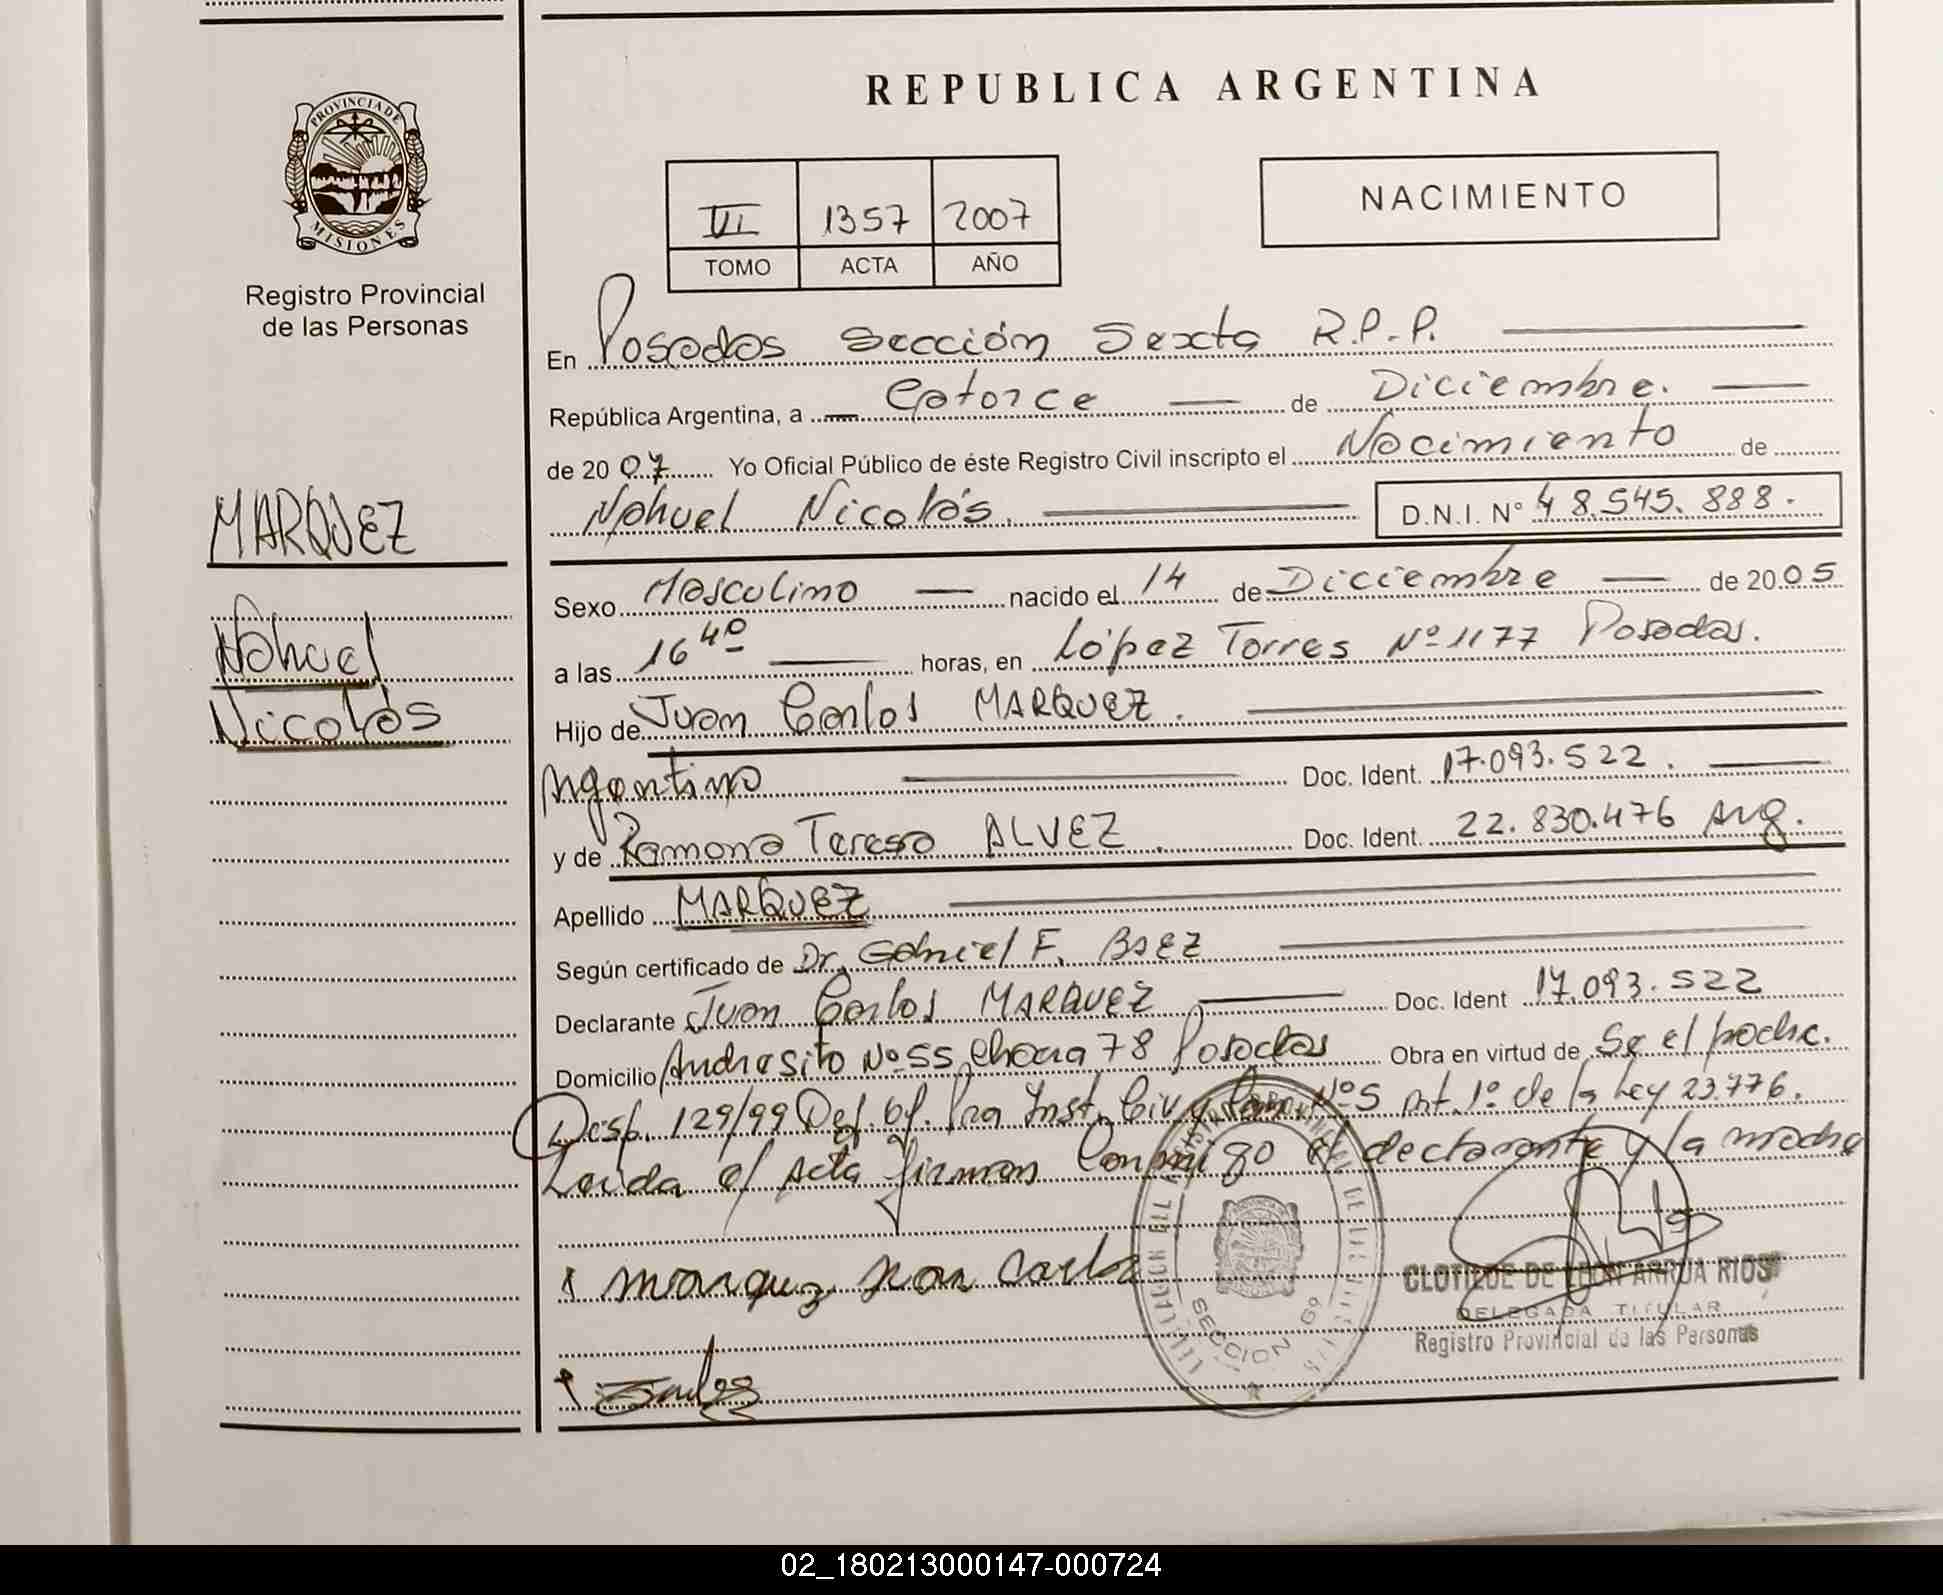 REPUBLICA ARGENTINA
PROVINCIA DE
MISIONES
Registro Provincial
de las Personas
VI 1357 2007
TOMO ACTA AÑO
NACIMIENTO
MARQUEZ
Nahuel
Nicolás
En Posadas Sección Sexta R.P.P.
República Argentina, a Catorce de Diciembre.
de 2007 Yo Oficial Público de éste Registro Civil inscripto el Nacimiento de
Nahuel Nicolás. D.N.I. N° 48.545.888.
Sexo Masculino nacido el 14 de Diciembre de 2005
a las 16 40 horas, en López Torres Nº 1177 Posadas.
Hijo de Juan Carlos MARQUEZ.
Argentino Doc. Ident. 17.093.522.
y de Ramona Teresa ALVEZ. Doc. Ident. 22.830.476 Arg.
Apellido MARQUEZ
Según certificado de Dr. Gabriel F. BAEZ
Declarante Juan Carlos MARQUEZ Doc. Ident 17.093.522
Domicilio Andresito Nº 55 Chacra 78 Posadas Obra en virtud de Se el padre.
Desp. 129/99 Def. Of. 1ra Inst. Civ. y Com. Nº 5 Art. 1º de la Ley 23.776.
Leida el Acta firman Conmigo el declarante y la madre
Marquez Juan Carlos
SECCION 6º
CLOTILDE DE LEON ARRUA RIOS
DELEGADA TITULAR
Registro Provincial de las Personas
02_180213000147-000724